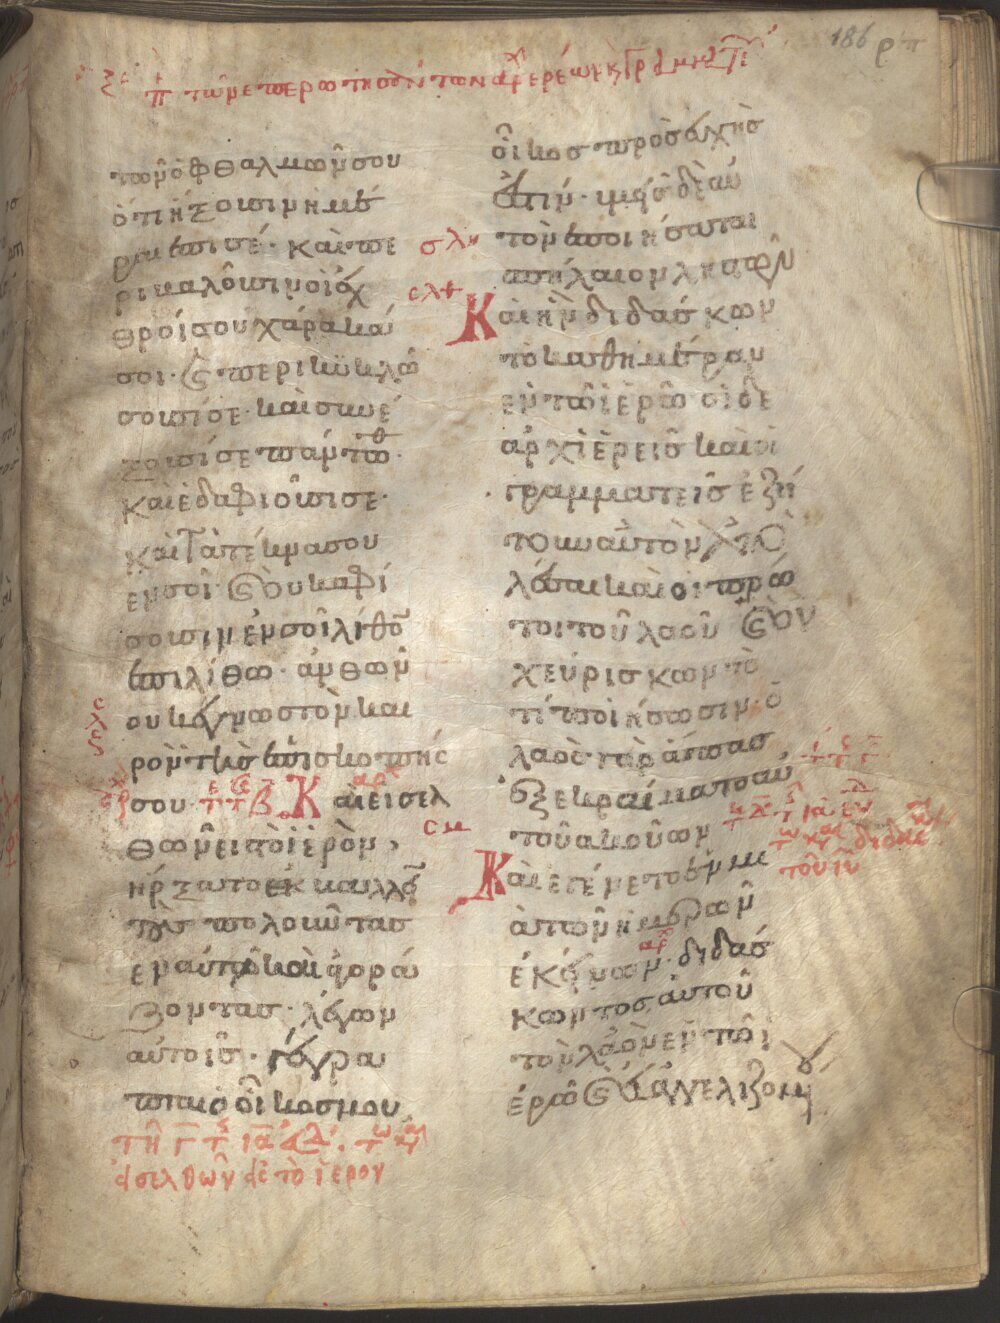 186 ρπ
τῶν ὀφθαλμῶν σου
ὅτι ἥξουσιν ἡμέ
ραι ἐπὶ σέ· καὶ πε
ριβαλοῦσιν οἱ ἐχ
θροί σου χάρακά
σοι· καὶ περικυκλώ
σουσί σε· καὶ συνέ
ξουσί σε πάντοθ
καὶ ἐδαφιοῦσι σε·
καὶ τὰ τέκνα σου
ἐν σοὶ· καὶ οὐκ ἀφή
σουσιν ἐν σοὶ λίθον
ἐπὶ λίθω· ἀνθ ὧν
οὐκ ἔγνως τὸν και
ρὸν τῆς ἐπισκοπῆς
σου Καὶ εἰσελ
θὼν εἰς τὸ ἱερὸν,
ἤρξατο ἐκβάλλειν
τοὺς πωλοῦντας
ἐν αὐτῶ καὶ ἀγορά
ζοντας· λέγων
αὐτοῖς· γέγρα
πται ὁ οἶκός μου
τῆ εἰσελθὼν εἰς τὸ ἱερον
οἶκος προσευχῆς
ἐστίν· ὑμεῖς δὲ αὐ
τὸν ἐποιήσατε
σπήλαιον ληστῶν
σλθ Καὶ ἦν διδάσκων
τὸ καθ ἡμέραν
ἐν τῶ ἱερῶ οἱ δὲ
ἀρχιερεῖς καὶ οἱ
γραμματεῖς ἐζή
τουν αὐτὸν ἀπο
λέσαι καὶ οἱ πρῶ
τοι τοῦ λαοῦ καὶ οὐ
χ εὕρισκων τὸ
τί ποιήσωσιν· ὁ
λαὸς γὰρ ἅπας
ἐξεκρέματο αὐ
τοῦ ἀκούων
Καὶ ἐγένετο ἐν μιᾶ
σμ
τῶν ἡμερῶν
ἐκείνων· διδάσ
κωντος αὐτοῦ
τὸν λαὸν ἐν τῶ
ἱερῶ καὶ εὐαγγελιζομέν